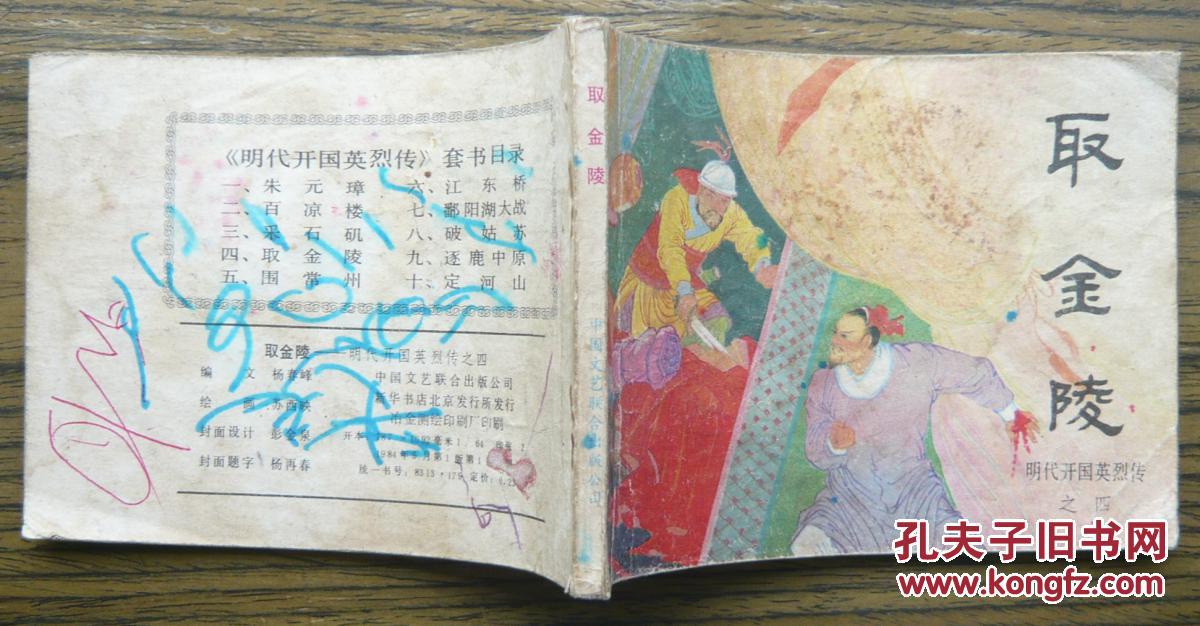 《明代开国英烈传》套书目录
一、朱元璋 六、江东桥
二、百凉楼 七、鄱阳湖大战
三、采石矶 八、破姑苏
四、取金陵 九、逐鹿中原
五、围常州 十、定河山
取金陵——明代开国英烈传之四
编文 杨春峰 中国文艺联合出版公司
绘画 苏西映 新华书店北京发行所发行
冶金测绘印刷厂印刷
封面设计 彭金泉 开本 毫米1/64 印张2
封面题字 杨再春 1984年 月第1版第1
统一书号:8313·179 定价:0.23
取金陵
中国文艺联合出版公司
取金陵
明代开国英烈传
之四
孔夫子旧书网
www.kongfz.com